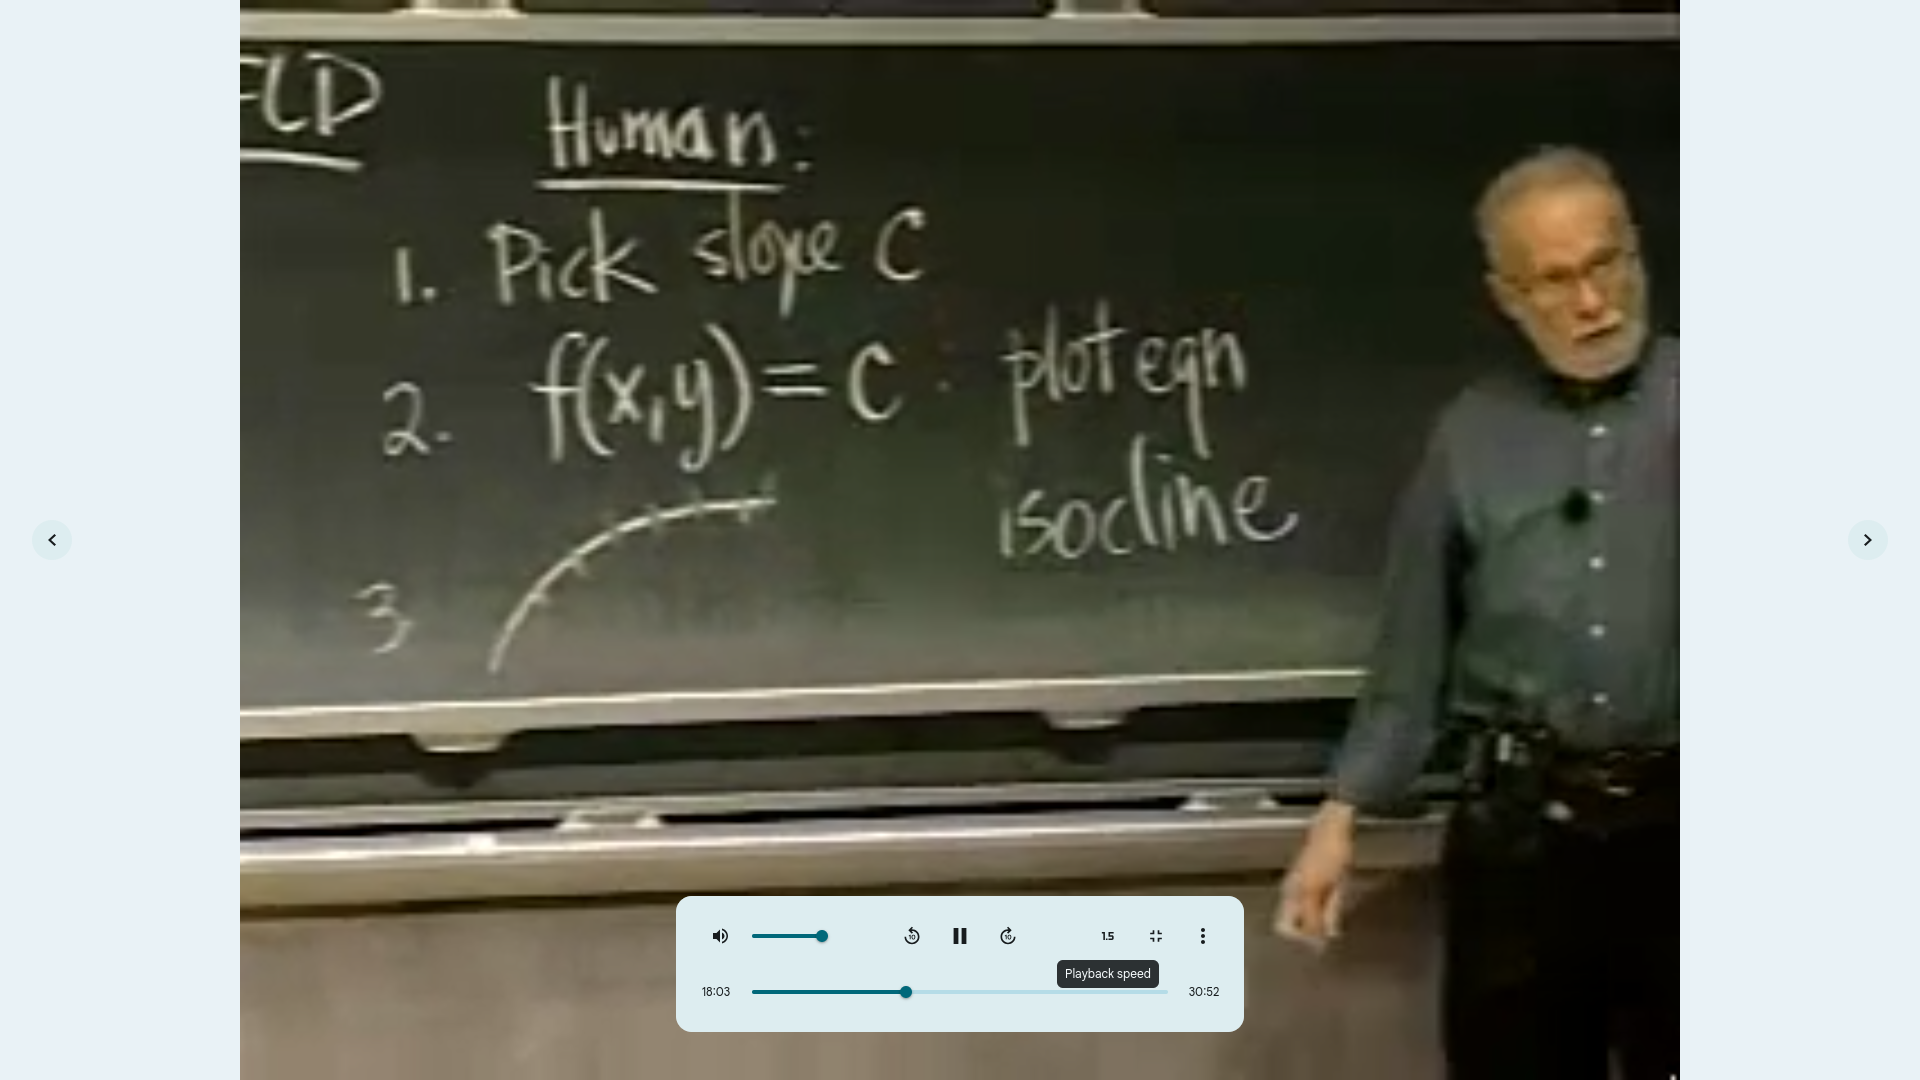 FLD
Human:
1. Pick slope C
2. f(x,y) = C . plot eqn
isocline
3
1.5
Playback speed
18:03
30:52